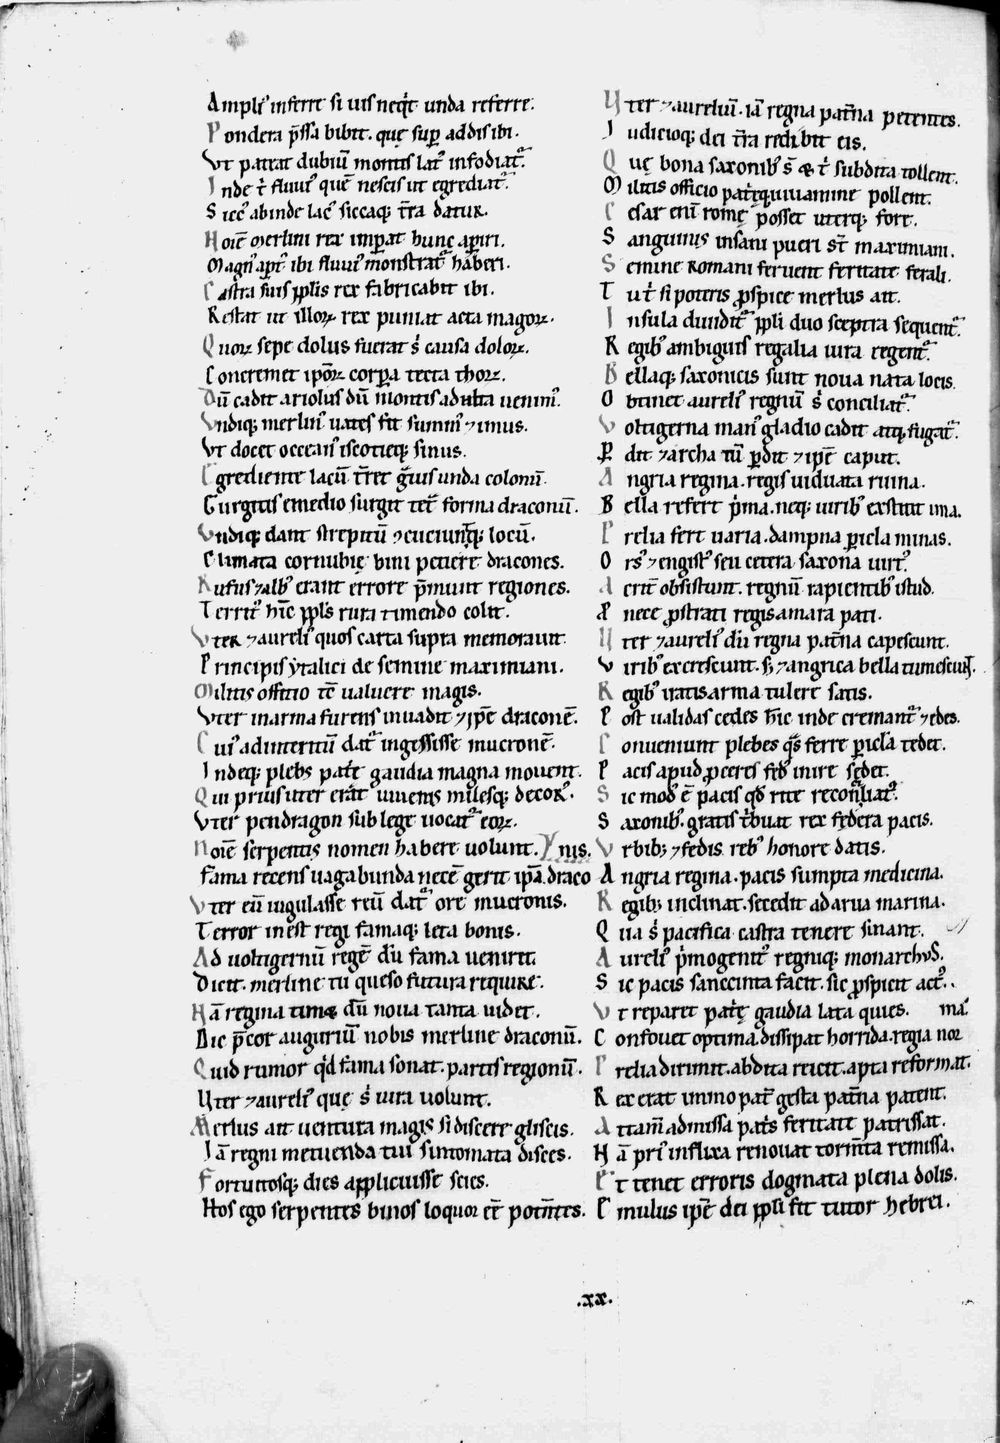 Ampli᷒ inferre si uis neq̇t unda referre.
Pondera p̄ssa bibit. quę sup addis ibi.
Vt pateat dubiū montis lat᷒ infodiat᷑.
Inde t̄ fluui᷒ quē nescis ut egrediat᷑.
Sicc᷒ abinde lac᷒ siccaq; t̄ra datur.
Hoiē merlini rex imperat hunc aperiri.
Magn᷒ apt᷒ ibi fluui᷒ monstrat᷑ haberi.
Castra suis pp̄lis rex fabricabit ibi.
Restat ut illoꝝ rex puniat acta magoꝝ.
Quoꝝ sepe dolus fuerat s᷒ causa doloꝝ.
Concremet ipōꝝ corpora tecta thorꝝ.
Dū cadit ariolus dū montis adulta
Vndiq; merlin᷒ uates fit summ᷒ ⁊ imus.
Vt docet occeani scotieq; sinus.
Egrediente lacū unda colonū.
Gurgitis emedio surgit forma draconū.
Vndiq; dant strepitū locū.
Climata cornubię bini petiere dracones.
Rufus ⁊ alb᷒ erant errore p̄munt regiones.
Territ᷒ hīc pp̄ls rura timendo colit.
Vter ⁊ aureli᷒ quos carta supra memorauit.
Principis ytalici de semine maximiani.
Militis officio tē ualuere magis.
Vter inarma furens inuadit ⁊ ipē draconē.
Cui᷒ adinteritū dat᷑ ingessisse mucronē.
Indeq; plebs pat̄t gaudia magna mouent.
Qui prius uter erat uiuens milesq; decor᷒.
Vter pendragon sub lege uocat᷑ eoꝝ.
Noiē serpentis nomen habere uolunt.
Fama recens uagabunda necē gerit ipā. draco nis.
Vter eū iugulasse reū dat᷑ ore mucronis.
Terror inest regi famaq; leta bonis.
Ad uoltigernū regē dū fama uenirit.
Dicit. merline tu queso futura require.
Hā regina timꝫ dū noua tanta uidet.
Dic p̄cor auguriū nobis merline draconū.
Quid rumor qd̄ fama sonat. partis regionū.
Uter ⁊ aureli᷒ que s᷒ iura uolunt.
Merlus ait uentura magis si discere gliscis.
Iā regni metuenda tui sintomata disces.
Fortuitosq; dies applicuisse scies.
Hos ego serpentes binos loquor eē potn̄tes.
Uter ⁊ aureliū. iā regna pat̄na petentes.
Iudicioq; dei t̄ra redibit eis.
Quę bona saxonib᷒ s̄ & t᷒ subdita tollent.
Militis officio pollent.
Cesar eni romę posset uterq; fore.
Sanguinis insani pueri st̄ maximiani.
Semine romani feruent feritate ferali.
Tut᷒ si poteris ꝓspice merlus ait.
Insula diuidit᷑ pp̄li duo sceptra sequent᷑.
Regib᷒ ambiguis regalia iura regent᷑.
Bellaq; saxonicis sunt noua nata locis.
Obtinet aureli᷒ regnū s᷒ conciliat᷑.
Voltigerna man᷒ gladio cadit atq; fugat᷑.
Perdit ⁊ archa tū perdit ⁊ ipē caput.
Angria regina. regis uiduata ruina.
Bella refert p᷒ma. neq; uirib᷒ exstitit ima.
Prelia fert uaria. dampna pericla minas.
Ors᷒ ⁊ engist᷒ seu cetera saxona uirt᷒.
Acrit᷒ obsistunt. regnū rapientib᷒ istud.
A nece ꝓstrati regis amara pati.
Uter ⁊ aureli᷒ dū regna pat̄na capescunt.
Virib᷒ excrescunt. s; ⁊ angrica bella tumescunt.
Regib᷒ iratis arma tulere satis.
Post ualidas cedes hīc inde cremant᷑ ⁊ edes.
Conueniunt plebes qs̄ ferre pericla tedet.
Pacis apud ꝓceres fed᷒ inire sędet.
Sic mod᷒ ē pacis qd̄ rite reconciliat᷑.
Saxonib᷒. gratis t᷒buat rex fędera pacis.
Vrbib; ⁊ fedis reb᷒ honore datis.
Angria regina. pacis sumpta medicina.
Regib; inclinat. secedit ad arua marina.
Qua s᷒ pacifica castra tenere sinant.
Aureli᷒ p᷒mogenit᷒ regniq; monarchus.
Sic pacis sanccinta facit. sic ꝓspicit act᷒.
Vt reparet pat᷒ę gaudia lata quies.
Confouet optima. dissipat horrida. regia nor ma.
Prelia dirimit. abdita reicit. apta reformat.
Rex erat immo pat᷒ gesta pat̄na patent.
Attam̄ admissa pat᷒s feritate patrissat.
Hā pri᷒ influxa renouat torm̄ta remissa.
Et tenet erroris dogmata plena dolis.
Emulus ipē dei pp̄li fit tutor hebrei.
.xx.